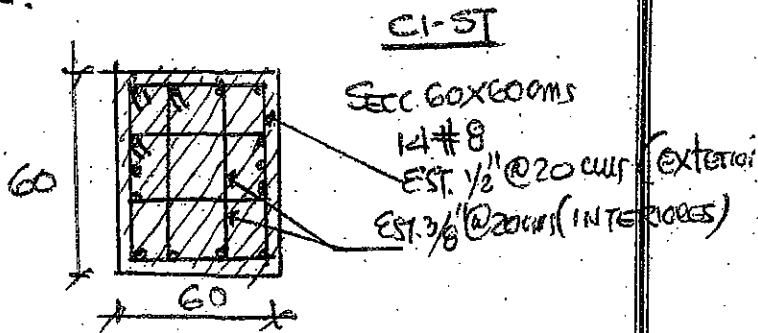 C1-ST
SECC. 60X60cms
14#8
EST. 1/2" @20 cms (exterior
EST. 3/8" @20cms (INTERIORES)
60
60